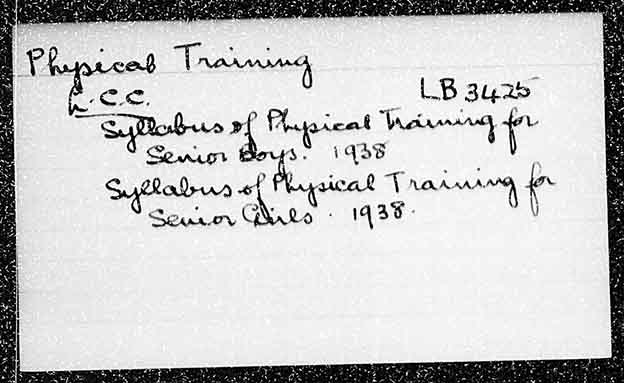 Physical Training
L.C.C.
LB 3425
Syllabus of Physical Training for
Senior Boys. 1938
Syllabus of Physical Training for
Senior Girls. 1938.